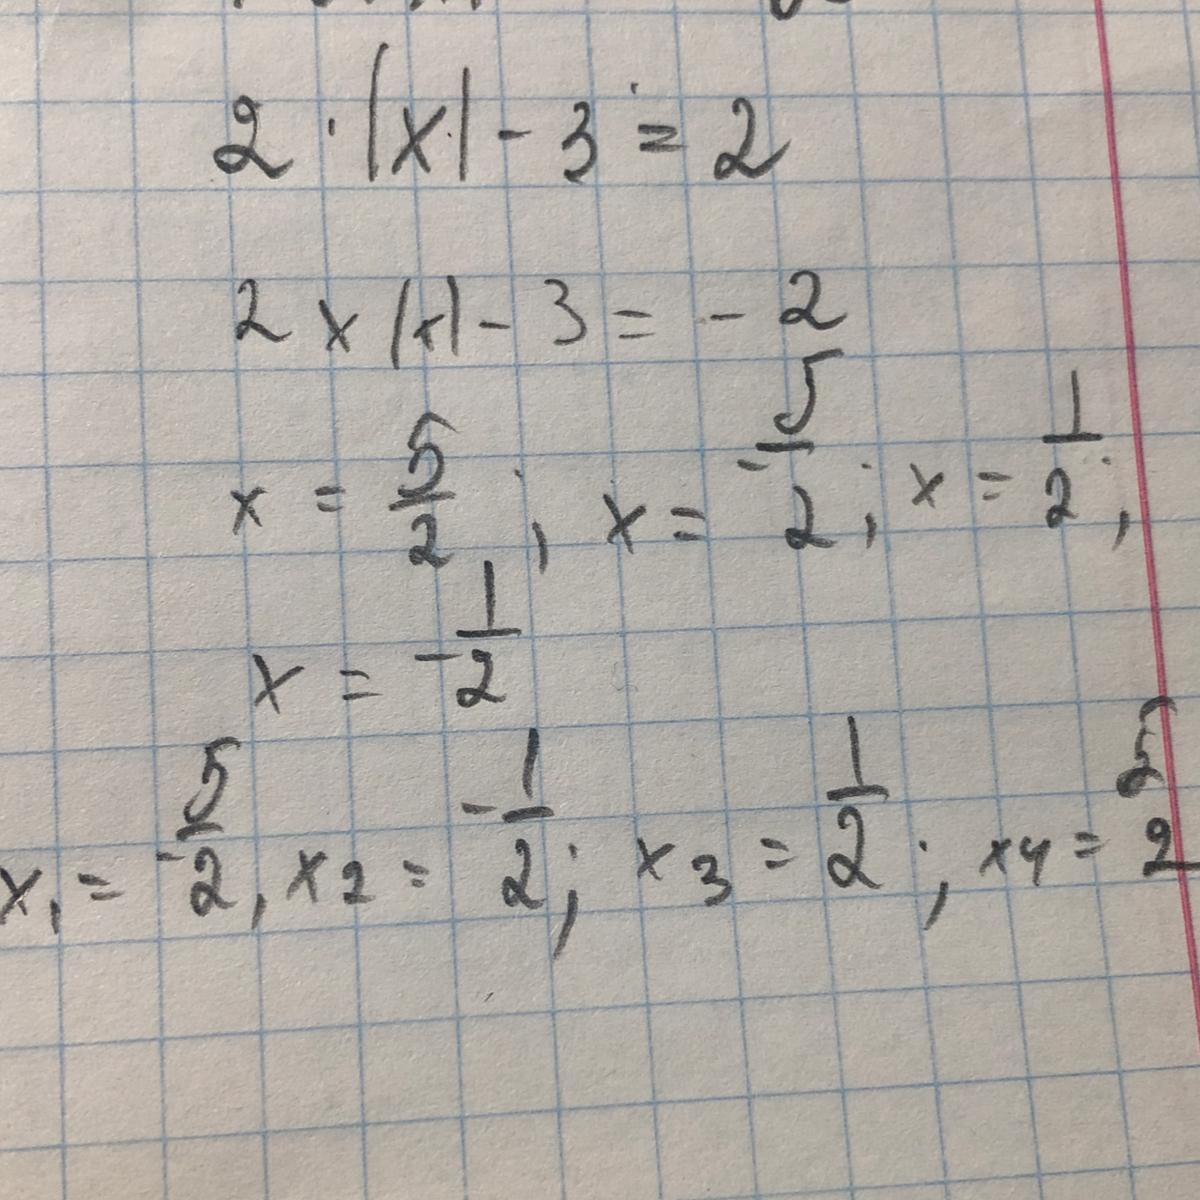 2 · |x| - 3 = 2
2 x |x| - 3 = - 2
x = 5/2 ; x = -5/2 ; x = 1/2 ;
x = -1/2
x1 = -5/2, x2 = -1/2; x3 = 1/2 ; x4 = 5/2